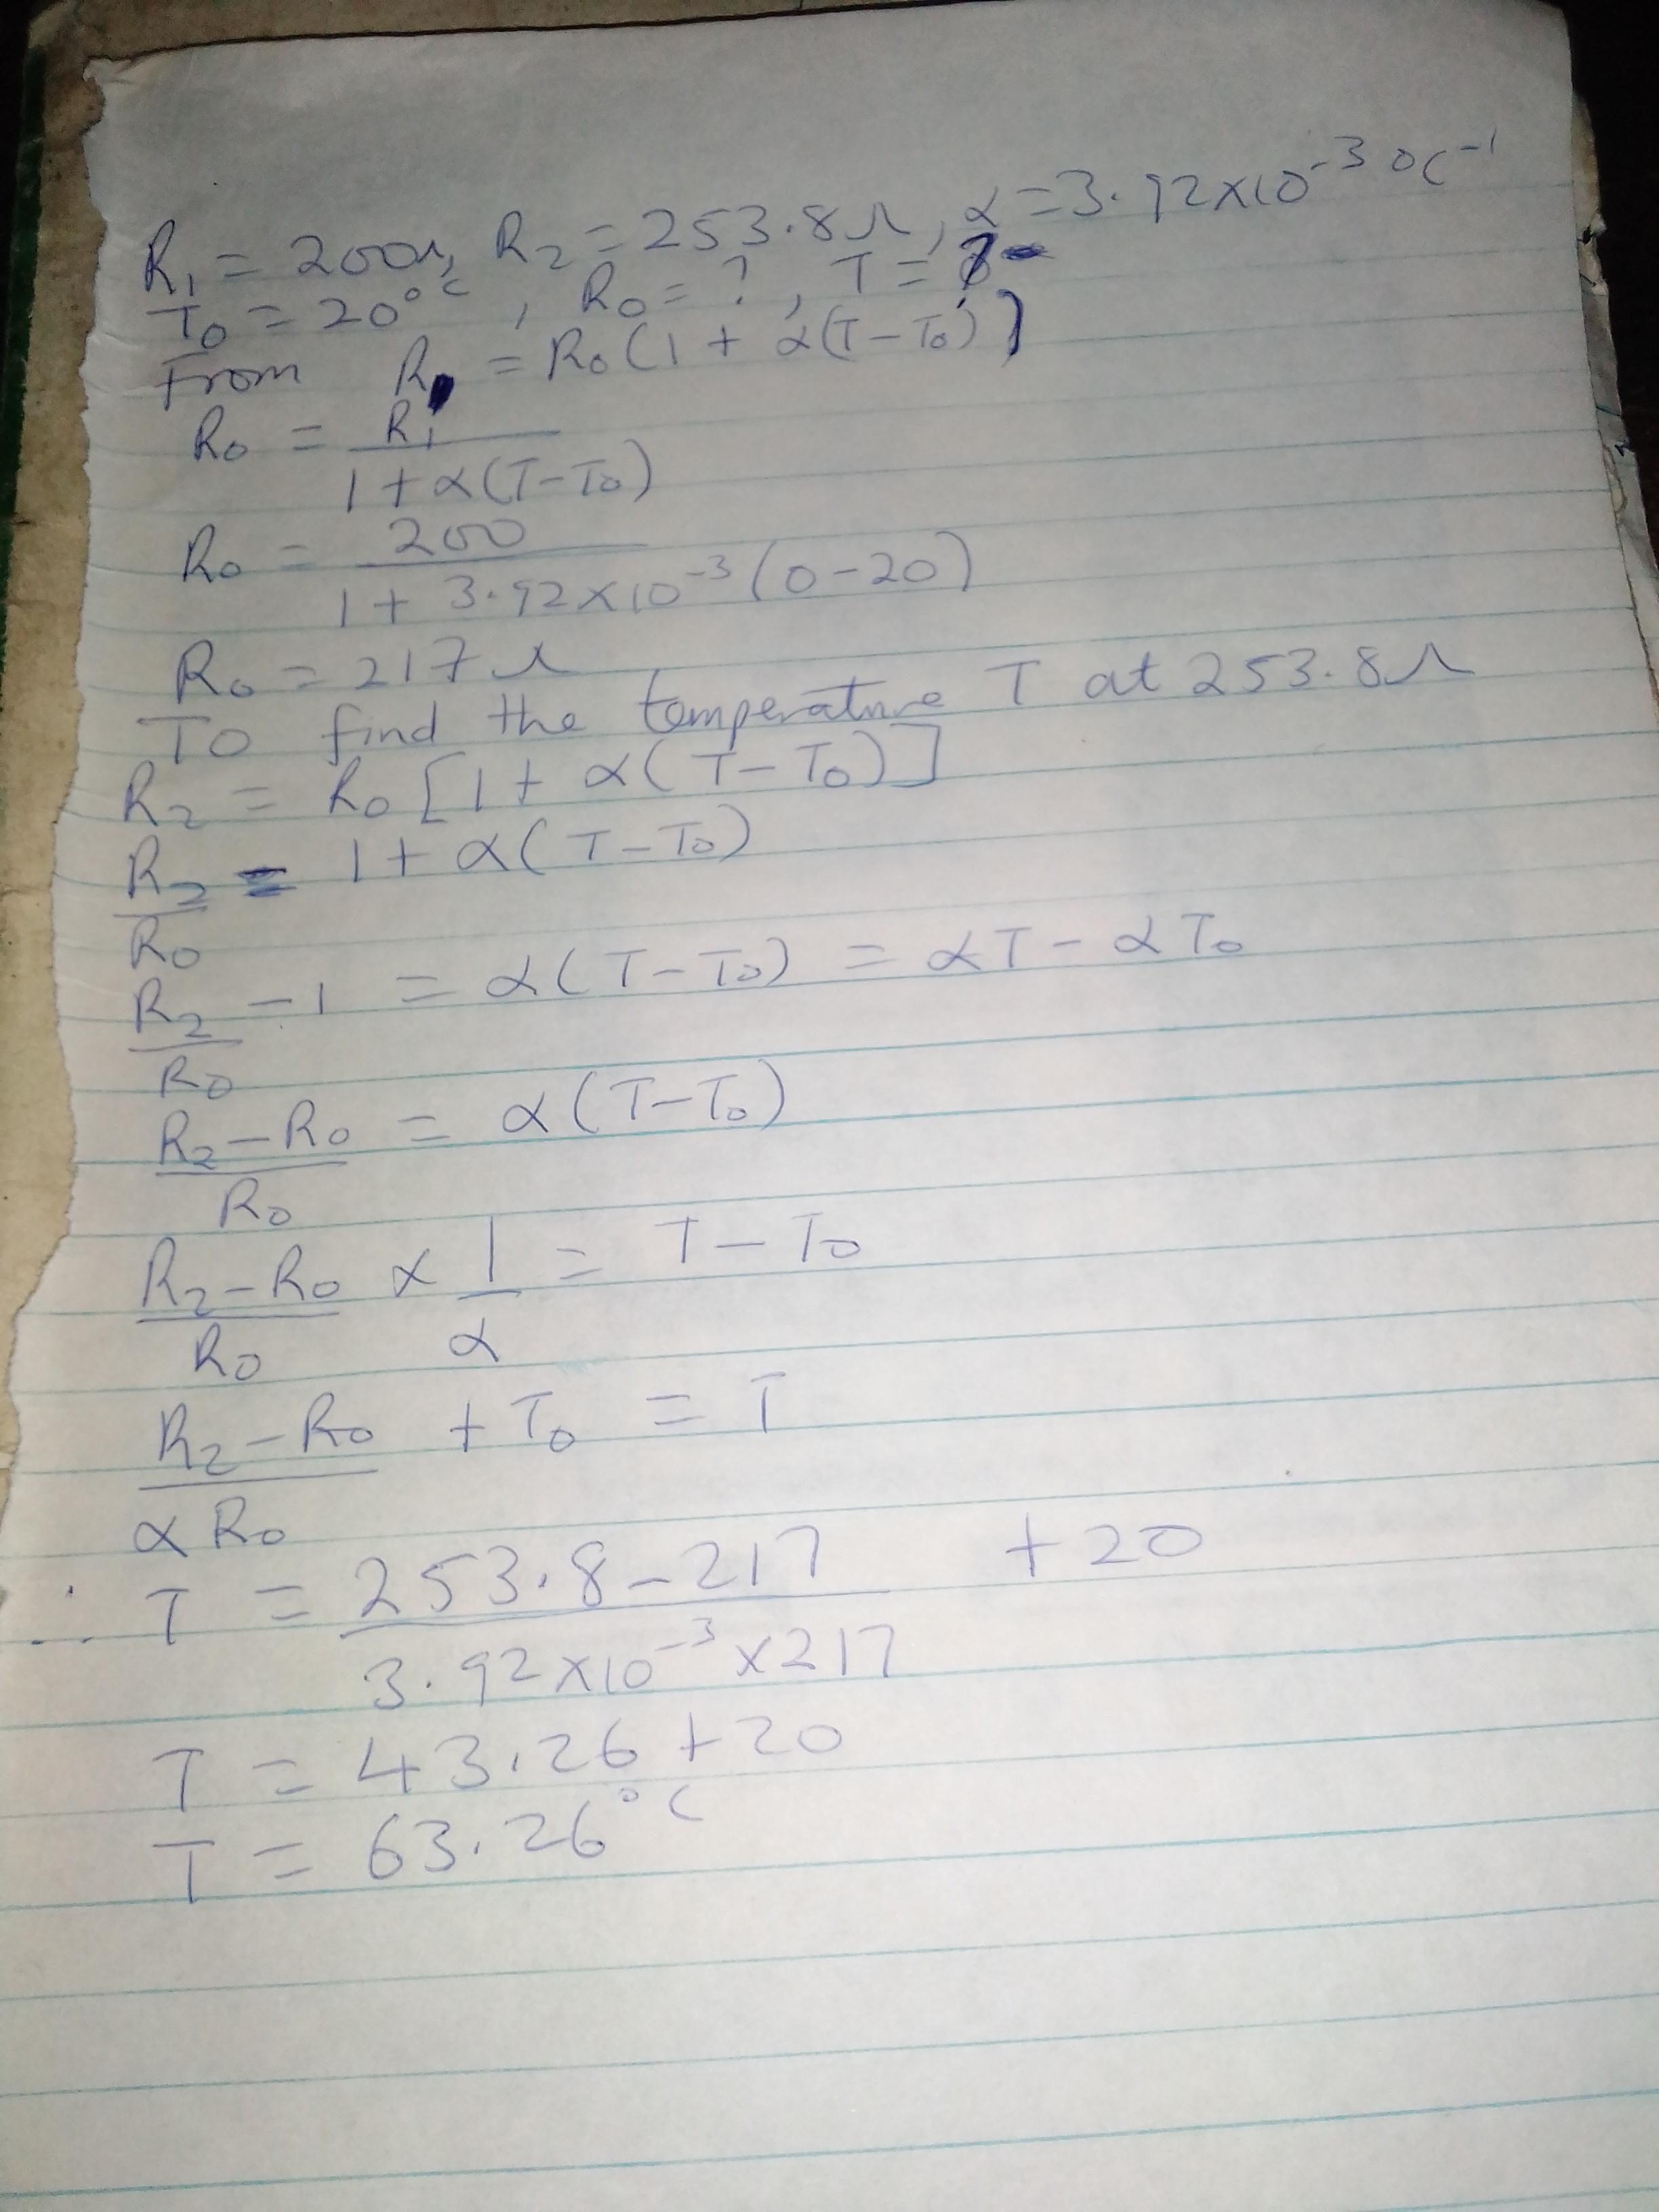 R₁ = 200Ω, R₂ = 253.8Ω, α = 3.92×10⁻³ °C⁻¹
T₀ = 20°C, R₀ = ?, T = ?
From R = R₀(1 + α(T–T₀))
R₀ = R₁ / 1 + α(T–T₀)
R₀ = 200 / 1 + 3.92×10⁻³(0–20)
R₀ = 217Ω
To find the temperature T at 253.8Ω
R₂ = R₀[1 + α(T–T₀)]
R₂/R₀ = 1 + α(T–T₀)
R₂/R₀ – 1 = α(T–T₀) = αT – αT₀
R₂–R₀ / R₀ = α(T–T₀)
R₂–R₀ / R₀ × 1/α = T – T₀
R₂–R₀ / αR₀ + T₀ = T
∴ T = 253.8–217 / 3.92×10⁻³×217 + 20
T = 43.26 + 20
T = 63.26°C